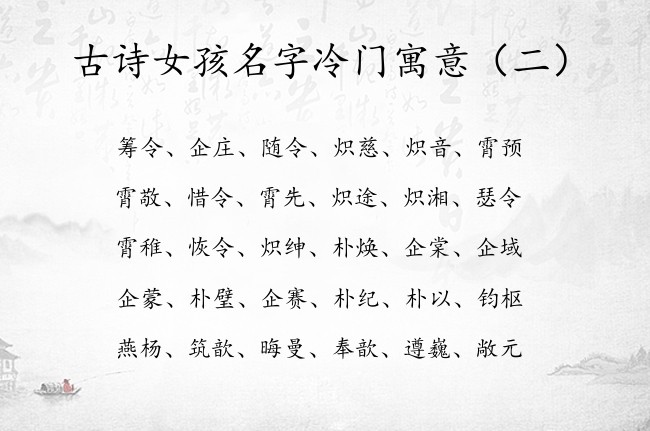 古诗女孩名字冷门寓意（二）
筹令、企庄、随令、炽慈、炽音、霄预
霄敬、惜令、霄先、炽途、炽湘、瑟令
霄稚、恢令、炽绅、朴焕、企棠、企域
企蒙、朴璧、企赛、朴纪、朴以、钧枢
燕杨、筑歆、晦曼、奉歆、遵巍、敞元